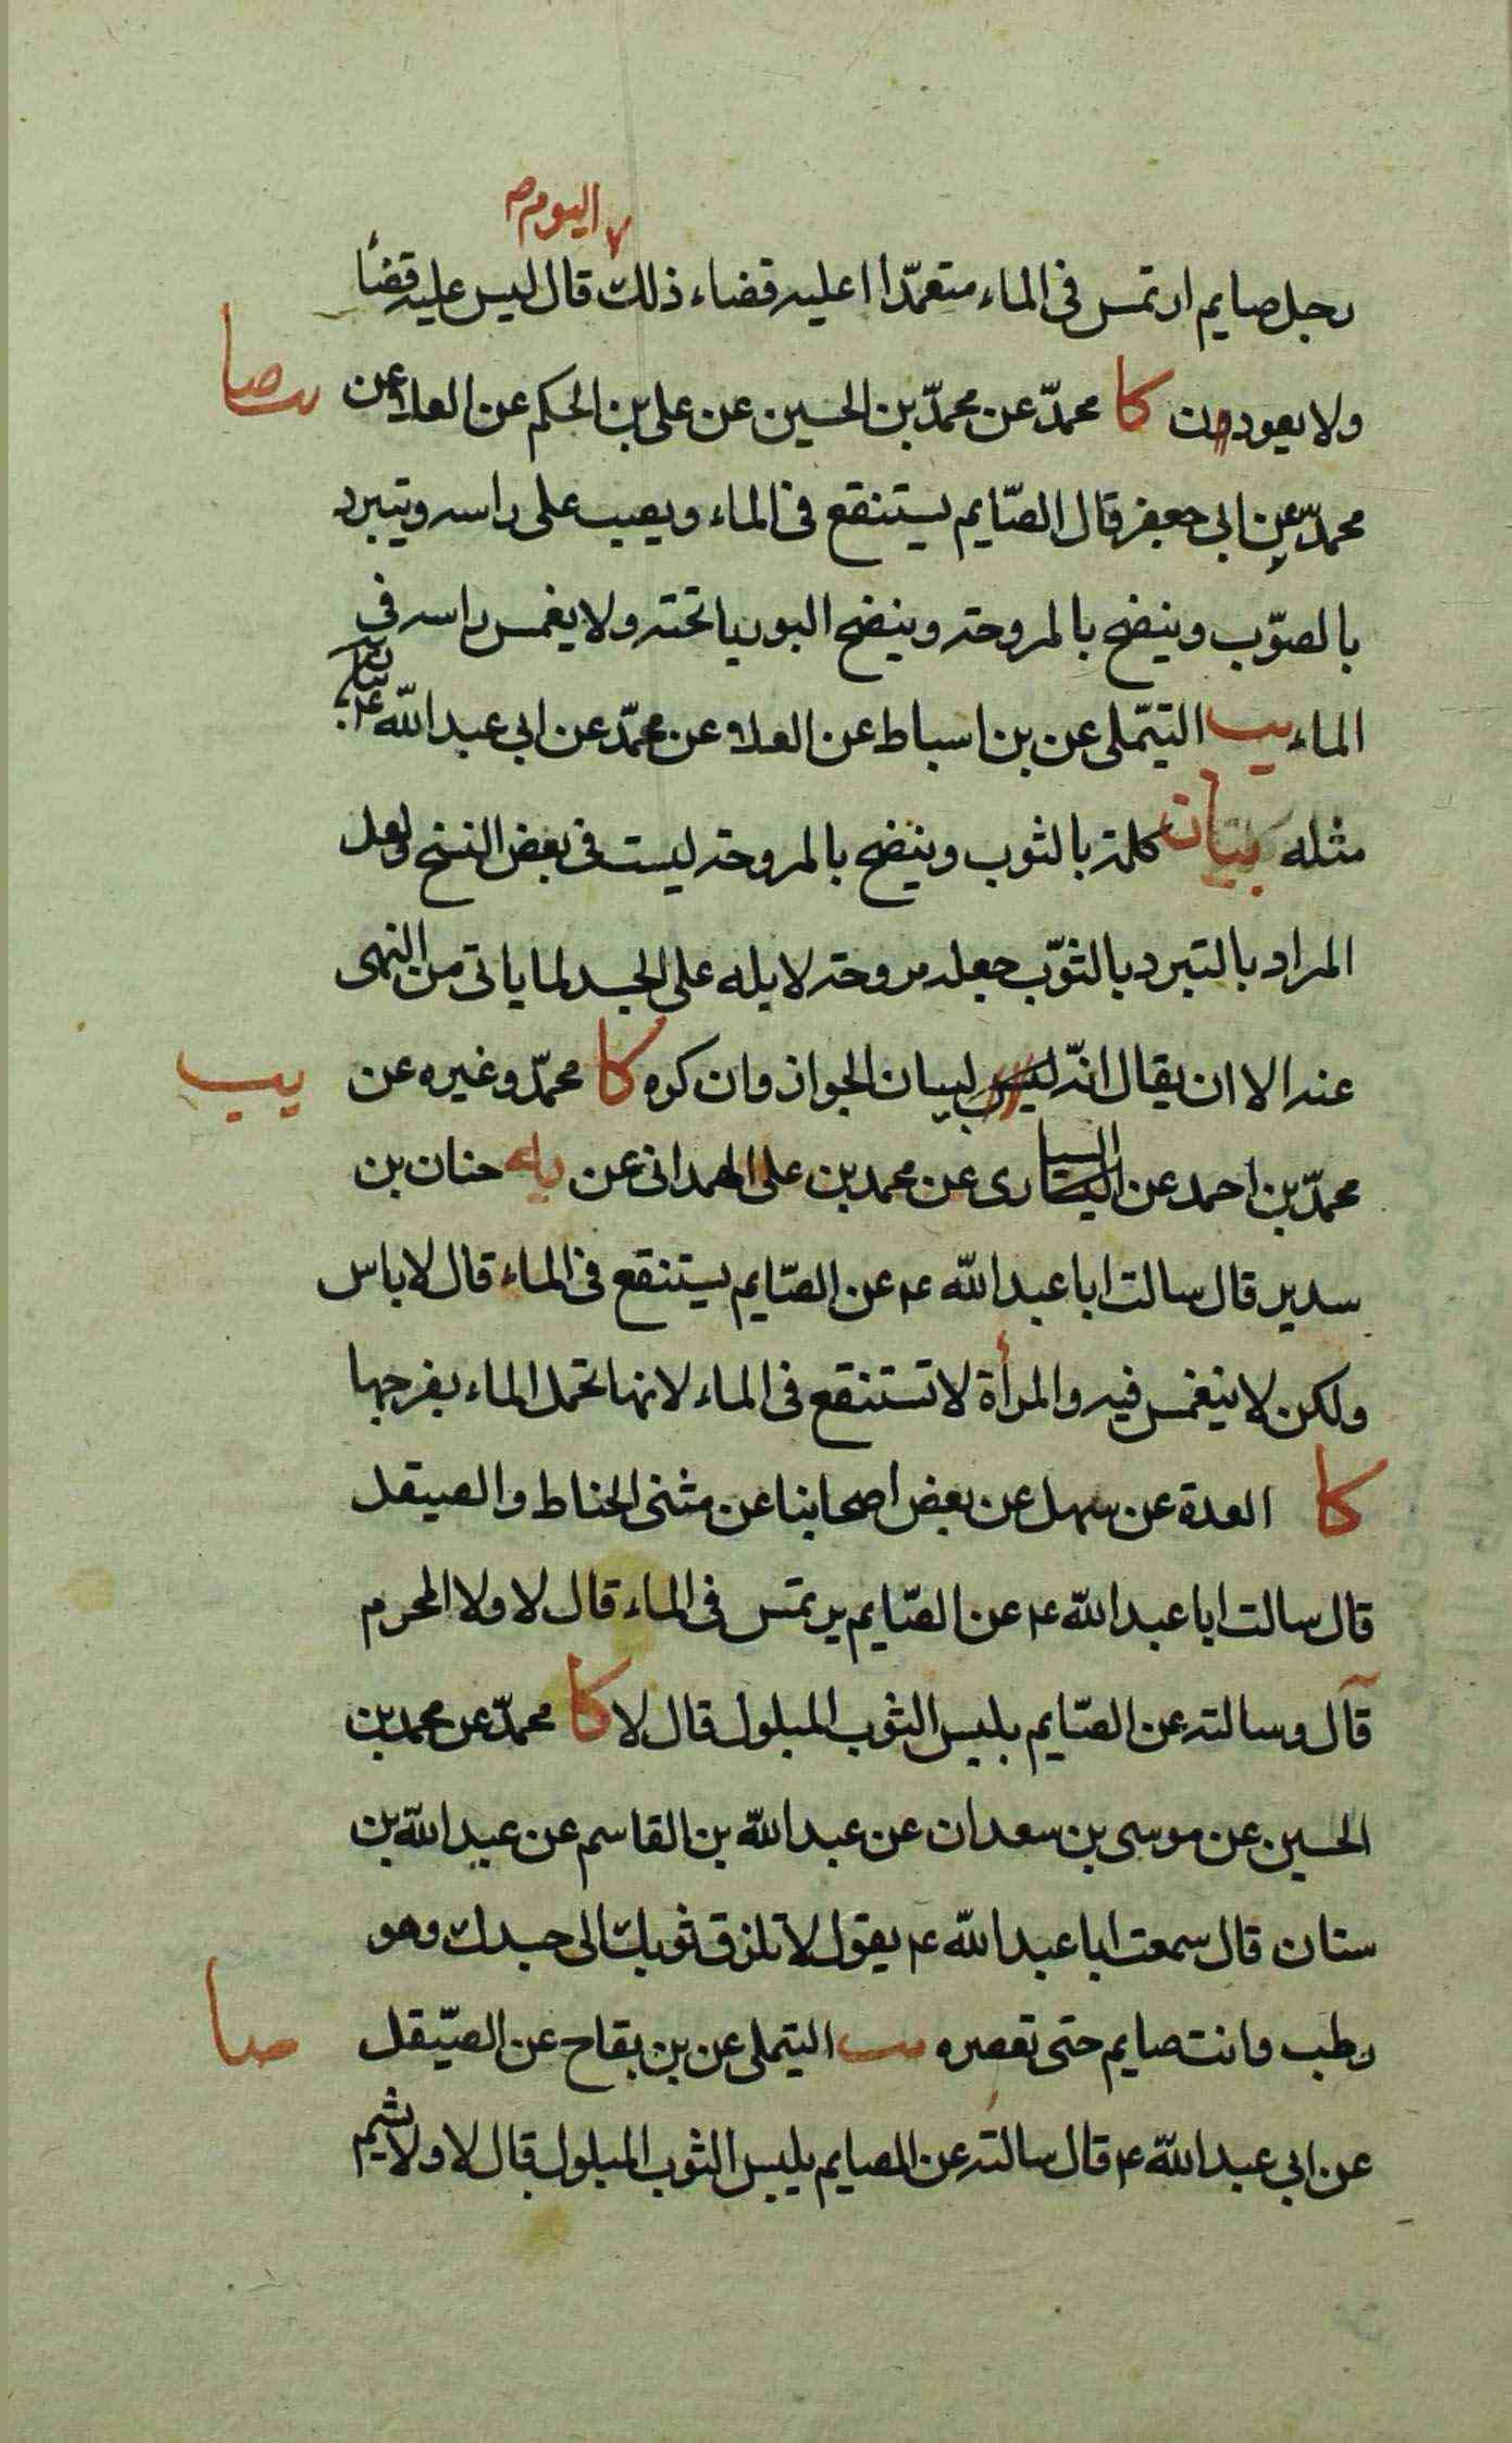 اليوم صح
رجل صايم ارتمس فى الماء متعمّدا اعليه قضاء ذلك قال ليس عليه قضاء
ولا يعودن كا محمّد عن محمّد بن الحسين عن على بن الحكم عن العلا عن
يب صا
محمّد عن ابى جعفر قال الصّايم يستنقع فى الماء ويصب على راسه ويتبرد
بالصوّب وينضح بالمروحة وينضح البوريا تحته ولا يغمس راسه فى
الماء يب التيّملى عن بن اسباط عن العلا عن محمّد عن ابى عبد الله ع
مثله بيان كلمة بالثوب وينضح بالمروحة ليست فى بعض النسخ ولعل
المراد بالتبرد بالثوّب جعله مروحة لا بله على الجسد لما ياتى من النهى
عنه الا ان يقال انّه ليس لبيان الجواز وان كره كا محمّد وغيره عن
يب
محمّد بن احمد عن السيارى عن محمد بن على الهمدانى عن حنان بن
سدير قال سالت ابا عبد الله ع عن الصّايم يستنقع فى الماء قال لا باس
ولكن لا ينغمس فيه والمرأة لا تستنقع فى الماء لانها تحمل الماء بفرجها
كا العدة عن سهل عن بعض اصحابنا عن مثنى الحناط والصيقل
قال سالت ابا عبد الله ع عن الصّايم يرتمس فى الماء قال لا ولا المحرم
قال وسالته عن الصّايم يلبس الثوب المبلول قال لا كا محمّد عن محمد بن
الحسين عن موسى بن سعدان عن عبد الله بن القاسم عن عبد الله بن
سنان قال سمعت ابا عبد الله ع يقول لا تلزق ثوبك الى جسدك وهو
رطب وانت صايم حتى تعصره يب التيملى عن بن بقاح عن الصّيقل
صا
عن ابى عبد الله ع قال سالته عن الصايم يلبس الثوب المبلول قال لا ولا يشم